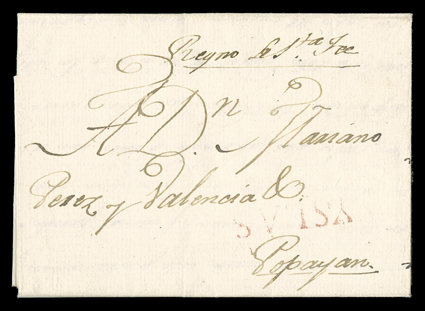 Reyno de Sta. Fee
A Dn. Mariano
Perez y Valencia &.
Popayan.